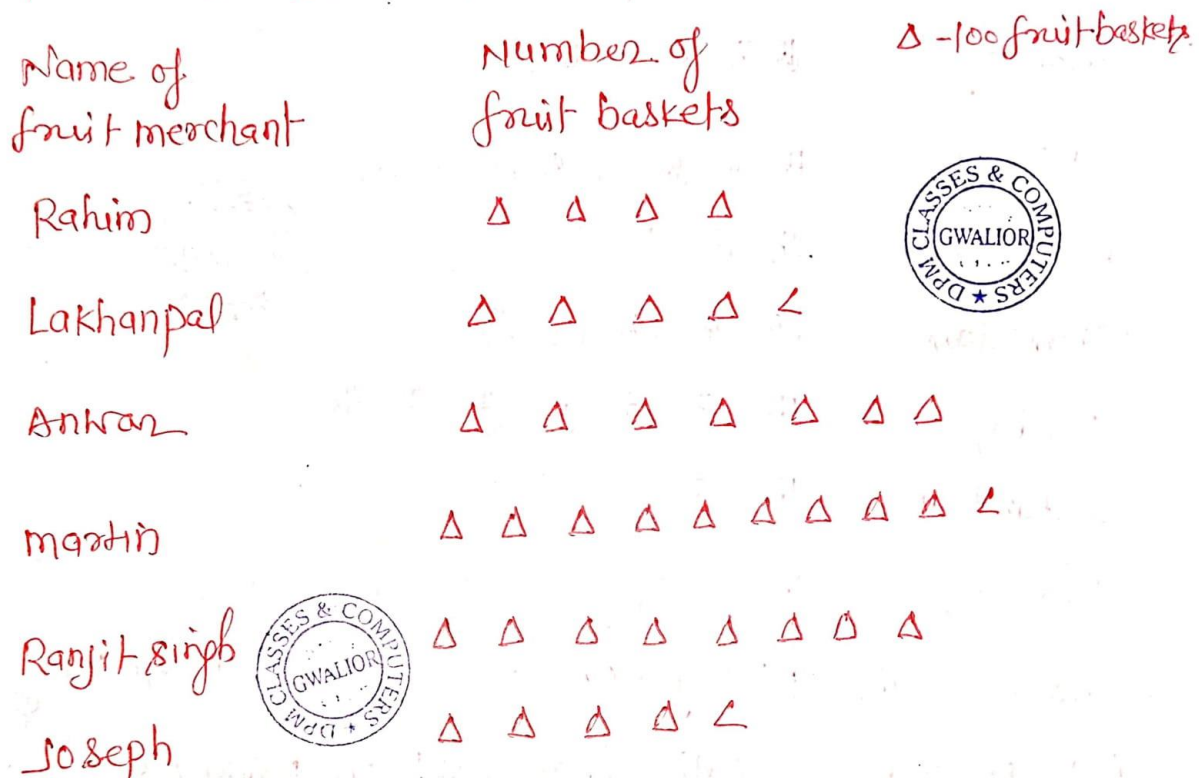 Name of
fruit merchant
Number of
fruit baskets
Δ -100 fruit baskets
Rahim
Δ Δ Δ Δ
Lakhanpal
Δ Δ Δ Δ ∠
Anwar
Δ Δ Δ Δ Δ Δ Δ
martin
Δ Δ Δ Δ Δ Δ Δ Δ Δ ∠
Ranjit singh
Δ Δ Δ Δ Δ Δ Δ Δ
Joseph
Δ Δ Δ Δ ∠
DPM CLASSES & COMPUTERS ★
GWALIOR
DPM CLASSES & COMPUTERS ★
GWALIOR